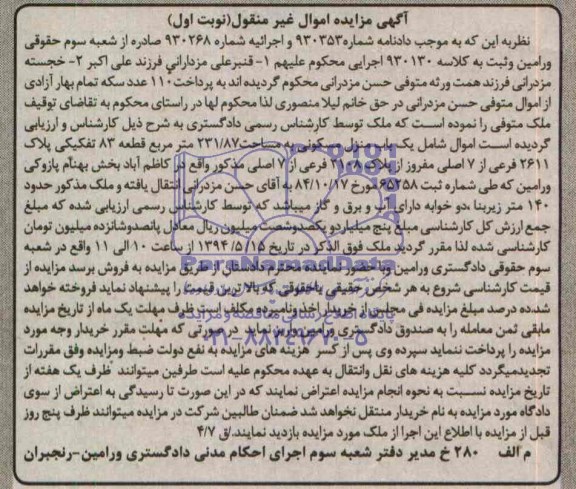 آگهی مزایده اموال غیر منقول(نوبت اول)
نظربه این که به موجب دادنامه شماره۹۳۰۳۵۳ و اجرائیه شماره ۹۳۰۲۶۸ صادره از شعبه سوم حقوقی
ورامین وثبت به کلاسه ۹۳۰۱۳۰ اجرایی محکوم علیهم ۱- قنبرعلی مزدارانی فرزند علی اکبر ۲- خجسته
مزدرانی فرزند همت ورثه متوفی حسن مزدرانی محکوم گردیده اند به پرداخت۱۱۰ عدد سکه تمام بهار آزادی
از اموال متوفی حسن مزدرانی در حق خانم لیلا منصوری لذا محکوم لها در راستای محکوم به تقاضای توقیف
ملک متوفی را نموده است که ملک توسط کارشناس رسمی دادگستری به شرح ذیل کارشناس و ارزیابی
گردیده است اموال شامل یک باب منزل مسکونی به مساحت۲۳۱/۸۷ متر مربع قطعه ۸۳ تفکیکی پلاک
۲۶۱۱ فرعی از ۷ اصلی مفروز از پلاک ۲۱۰۸ فرعی از ۷ اصلی مذکور واقع در کاظم آباد بخش بهنام پازوکی
ورامین که طی شماره ثبت ۶۵۲۵۸ مورخ ۸۴/۱۰/۱۷ به آقای حسن مزدرانی انتقال یافته و ملک مذکور حدود
۱۴۰ متر زیربنا ،دو خوابه دارای آب و برق و گاز میباشد که توسط کارشناس رسمی ارزیابی شده که مبلغ
جمع ارزش کل کارشناسی مبلغ پنج میلیاردو یکصدوشصت میلیون ریال معادل پانصدوشانزده میلیون تومان
کارشناسی شده لذا مقرر گردید ملک فوق الذکر در تاریخ ۱۳۹۴/۵/۱۵ از ساعت ۱۰ الی ۱۱ واقع در شعبه
سوم حقوقی دادگستری ورامین وبا حضور نماینده محترم دادستان از طریق مزایده به فروش برسد مزایده از
قیمت کارشناسی شروع به هر شخص حقیقی یاحقوقی که بالاترین قیمت را پیشنهاد نماید فروخته خواهد
شدده درصد مبلغ مزایده فی مجلس از خریدار اخذ و نامبرده مکلف است ظرف مهلت یک ماه از تاریخ مزایده
مابقی ثمن معامله را به صندوق دادگستری ورامین واریز نماید در صورتی که مهلت مقرر خریدار وجه مورد
مزایده را پرداخت ننماید سپرده وی پس از کسر هزینه های مزایده به نفع دولت ضبط ومزایده وفق مقررات
تجدیدمیگردد کلیه هزینه های نقل وانتقال به عهده محکوم علیه است طرفین میتوانند ظرف یک هفته از
تاریخ مزایده نسبت به نحوه انجام مزایده اعتراض نمایند که در این صورت تا رسیدگی به اعتراض از سوی
دادگاه مورد مزایده به نام خریدار منتقل نخواهد شد ضمنان طالبین شرکت در مزایده میتوانند ظرف پنج روز
قبل از مزایده با اطلاع این اجرا از ملک مورد مزایده بازدید نمایند./ق ۴/۷
م الف ۲۸۰ خ مدیر دفتر شعبه سوم اجرای احکام مدنی دادگستری ورامین-رنجبران
ParsNamadData
پایگاه اطلاع رسانی مناقصه و مزایده
۰۲۱-۸۸۳۴۹۶۷۰-۵